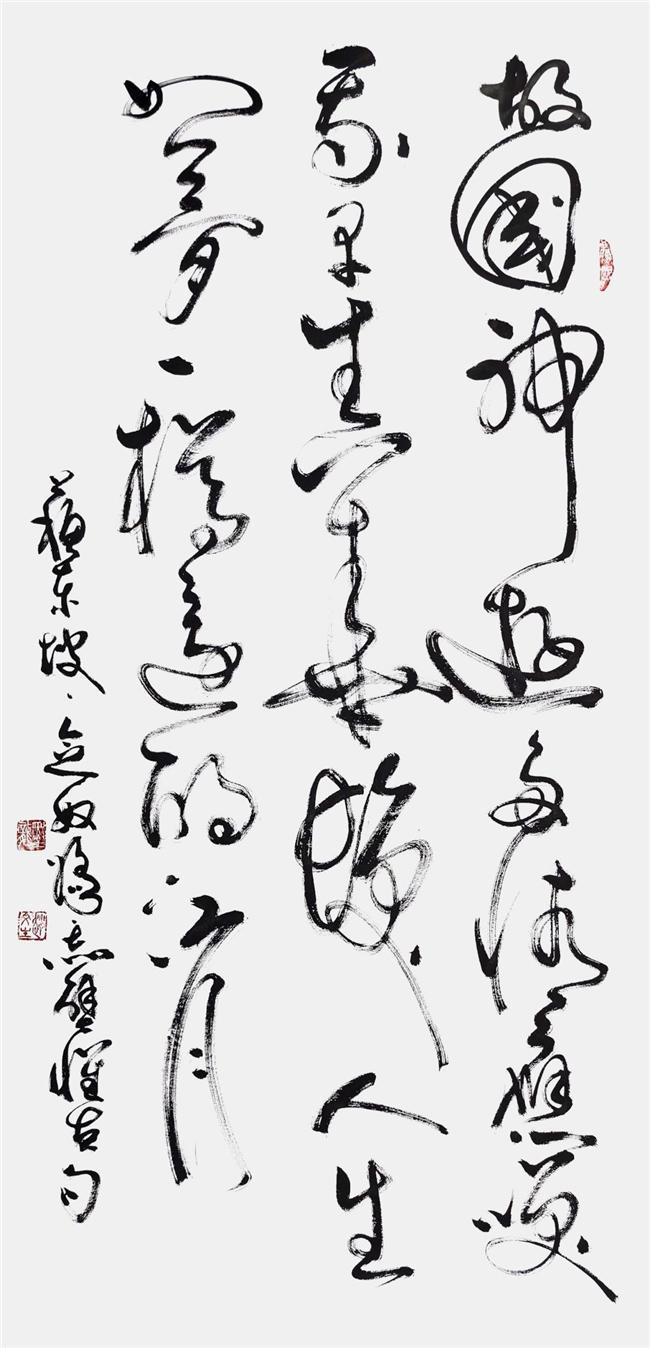 故國神遊多情應笑
我早生華髮人生
如夢一樽還酹江月
蘇東坡、念奴嬌赤壁懷古句